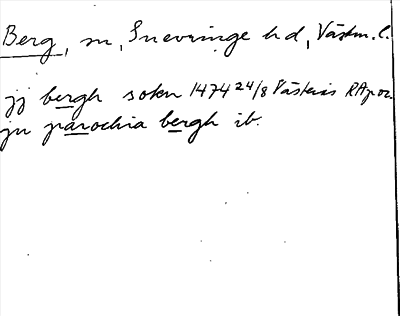 Berg, sn, Snevringe hd, Västm. l.
jj bergh sokn 1474 24/8 Västerås RAp or.
jn parochia bergh ib.